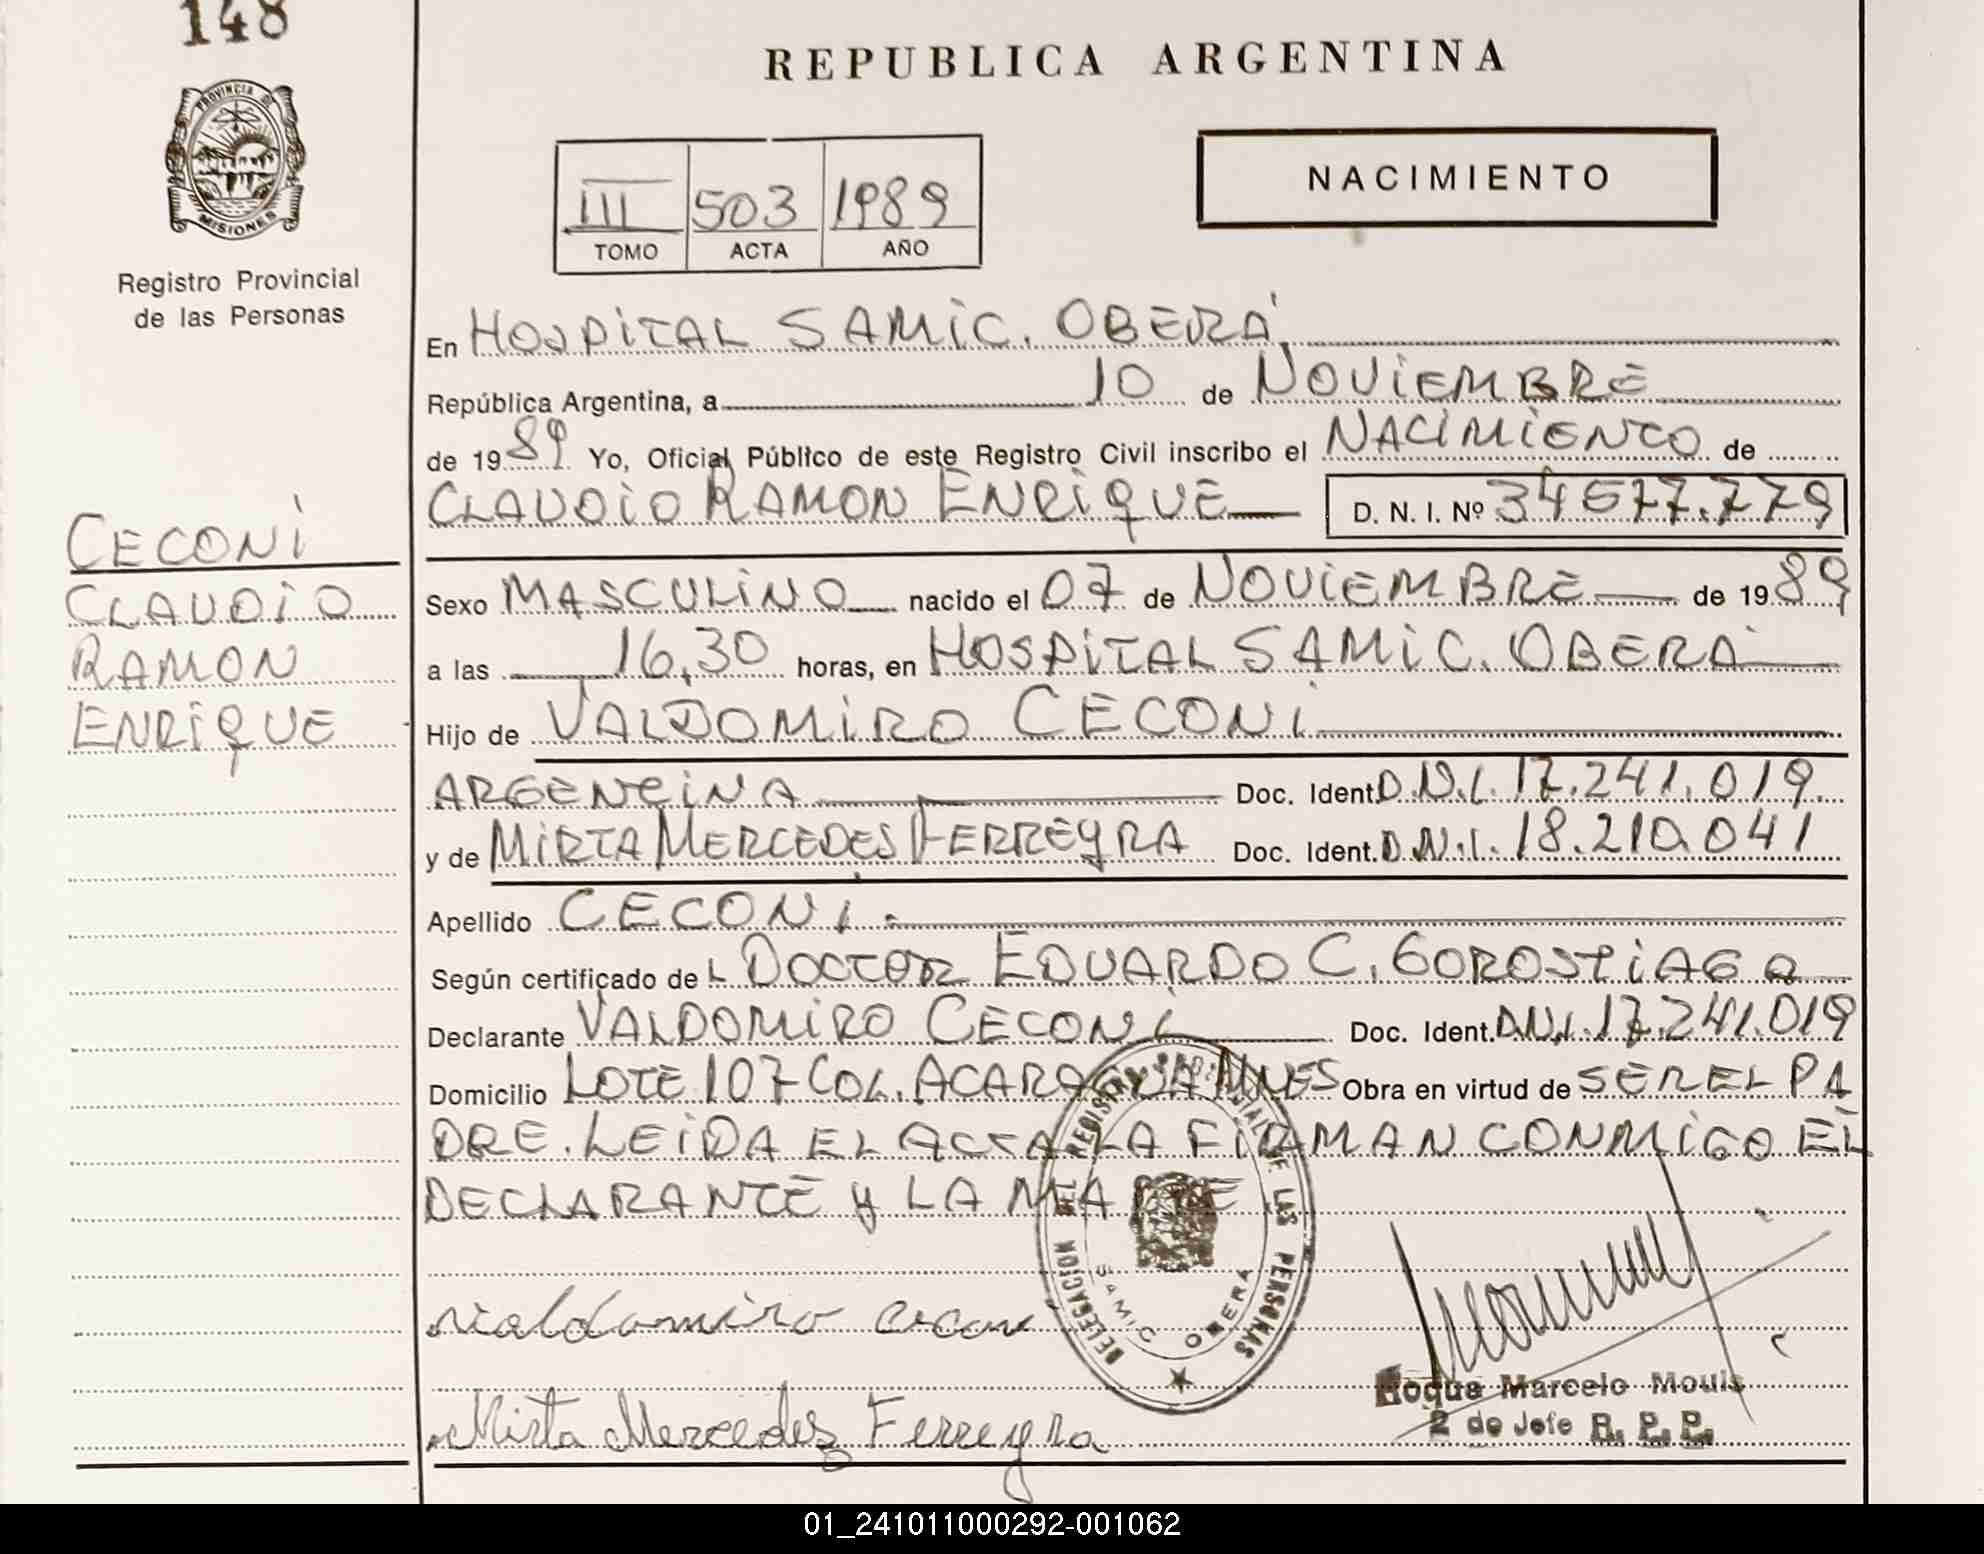 148
PROVINCIA DE
MISIONES
Registro Provincial
de las Personas
CECONI
CLAUDIO
RAMON
ENRIQUE
REPUBLICA ARGENTINA
III 503 1989
TOMO ACTA AÑO
NACIMIENTO
En HOSPITAL SAMIC. OBERÁ
República Argentina, a 10 de NOVIEMBRE
de 1989 Yo, Oficial Público de este Registro Civil inscribo el NACIMIENTO de
CLAUDIO RAMON ENRIQUE D. N. I. Nº 34677.779
Sexo MASCULINO nacido el 07 de NOVIEMBRE de 1989
a las 16,30 horas, en HOSPITAL SAMIC. OBERA
Hijo de VALDOMIRO CECONI
ARGENTINA Doc. Ident. D.N.I. 17.241.019.
y de MIRTA MERCEDES FERREYRA Doc. Ident. D.N.I. 18.210.041
Apellido CECONI.
Según certificado de L DOCTOR EDUARDO C. GOROSTIAGA
Declarante VALDOMIRO CECONI Doc. Ident. D.N.I. 17.241.019
Domicilio LOTE 107 COL. ACARAGUA MNES Obra en virtud de SER EL PA
DRE. LEIDA EL ACTA LA FIRMAN CONMIGO EL
DECLARANTE Y LA MADRE
DELEGACION DEL REGISTRO PROVINCIAL DE LAS PERSONAS
SAMIC OBERA
Valdomiro Ceconi
Mirta Mercedes Ferreyra
Roque Marcelo Mouis
2 de Jefe R. P. P.
01_241011000292-001062